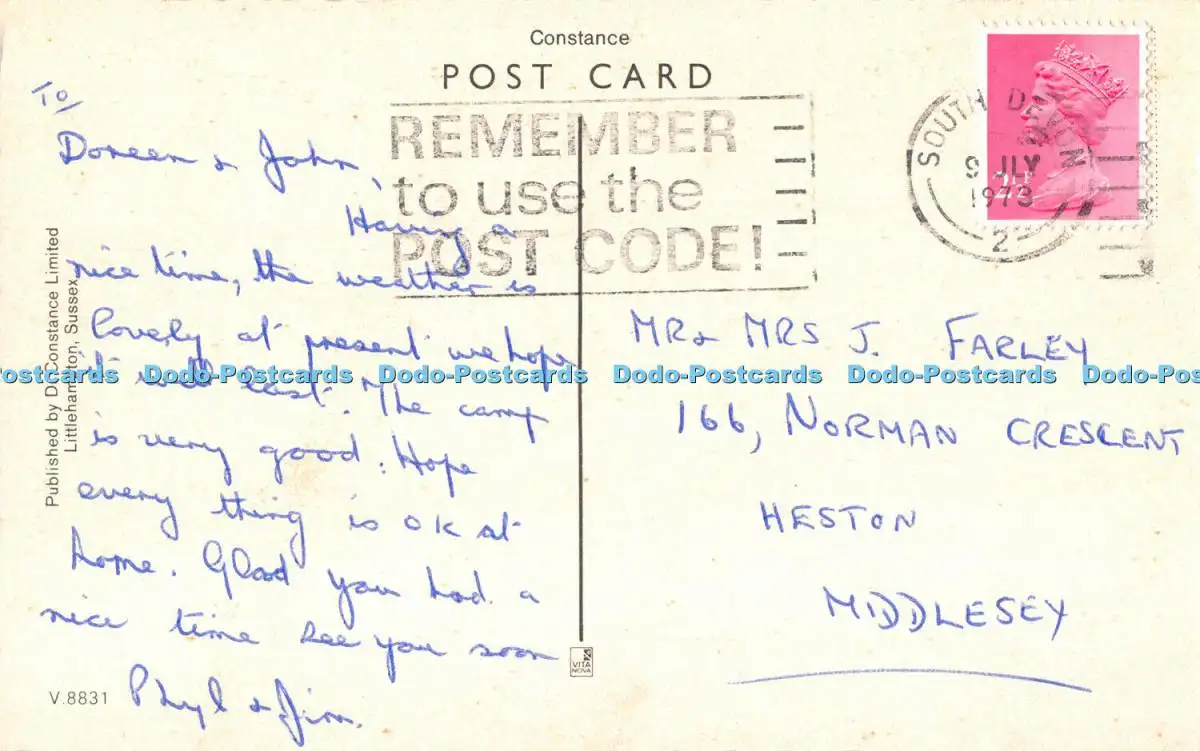 Constance
POST CARD
REMEMBER
to use the
POST CODE!
SOUTH DEVON
9 JLY
1973
2
To
Doreen & John,
Having a
nice time, the weather is
lovely at present we hope
it will last. The camp
is very good. Hope
every thing is OK at
home. Glad you had a
nice time see you soon
Phyl & Jim.
MR & MRS J. FARLEY
166, NORMAN CRESCENT
HESTON
MIDDLESEY
Published by D. Constance Limited
Littlehampton, Sussex
V.8831
VITA
NOVA
Dodo-Postcards Dodo-Postcards Dodo-Postcards Dodo-Postcards